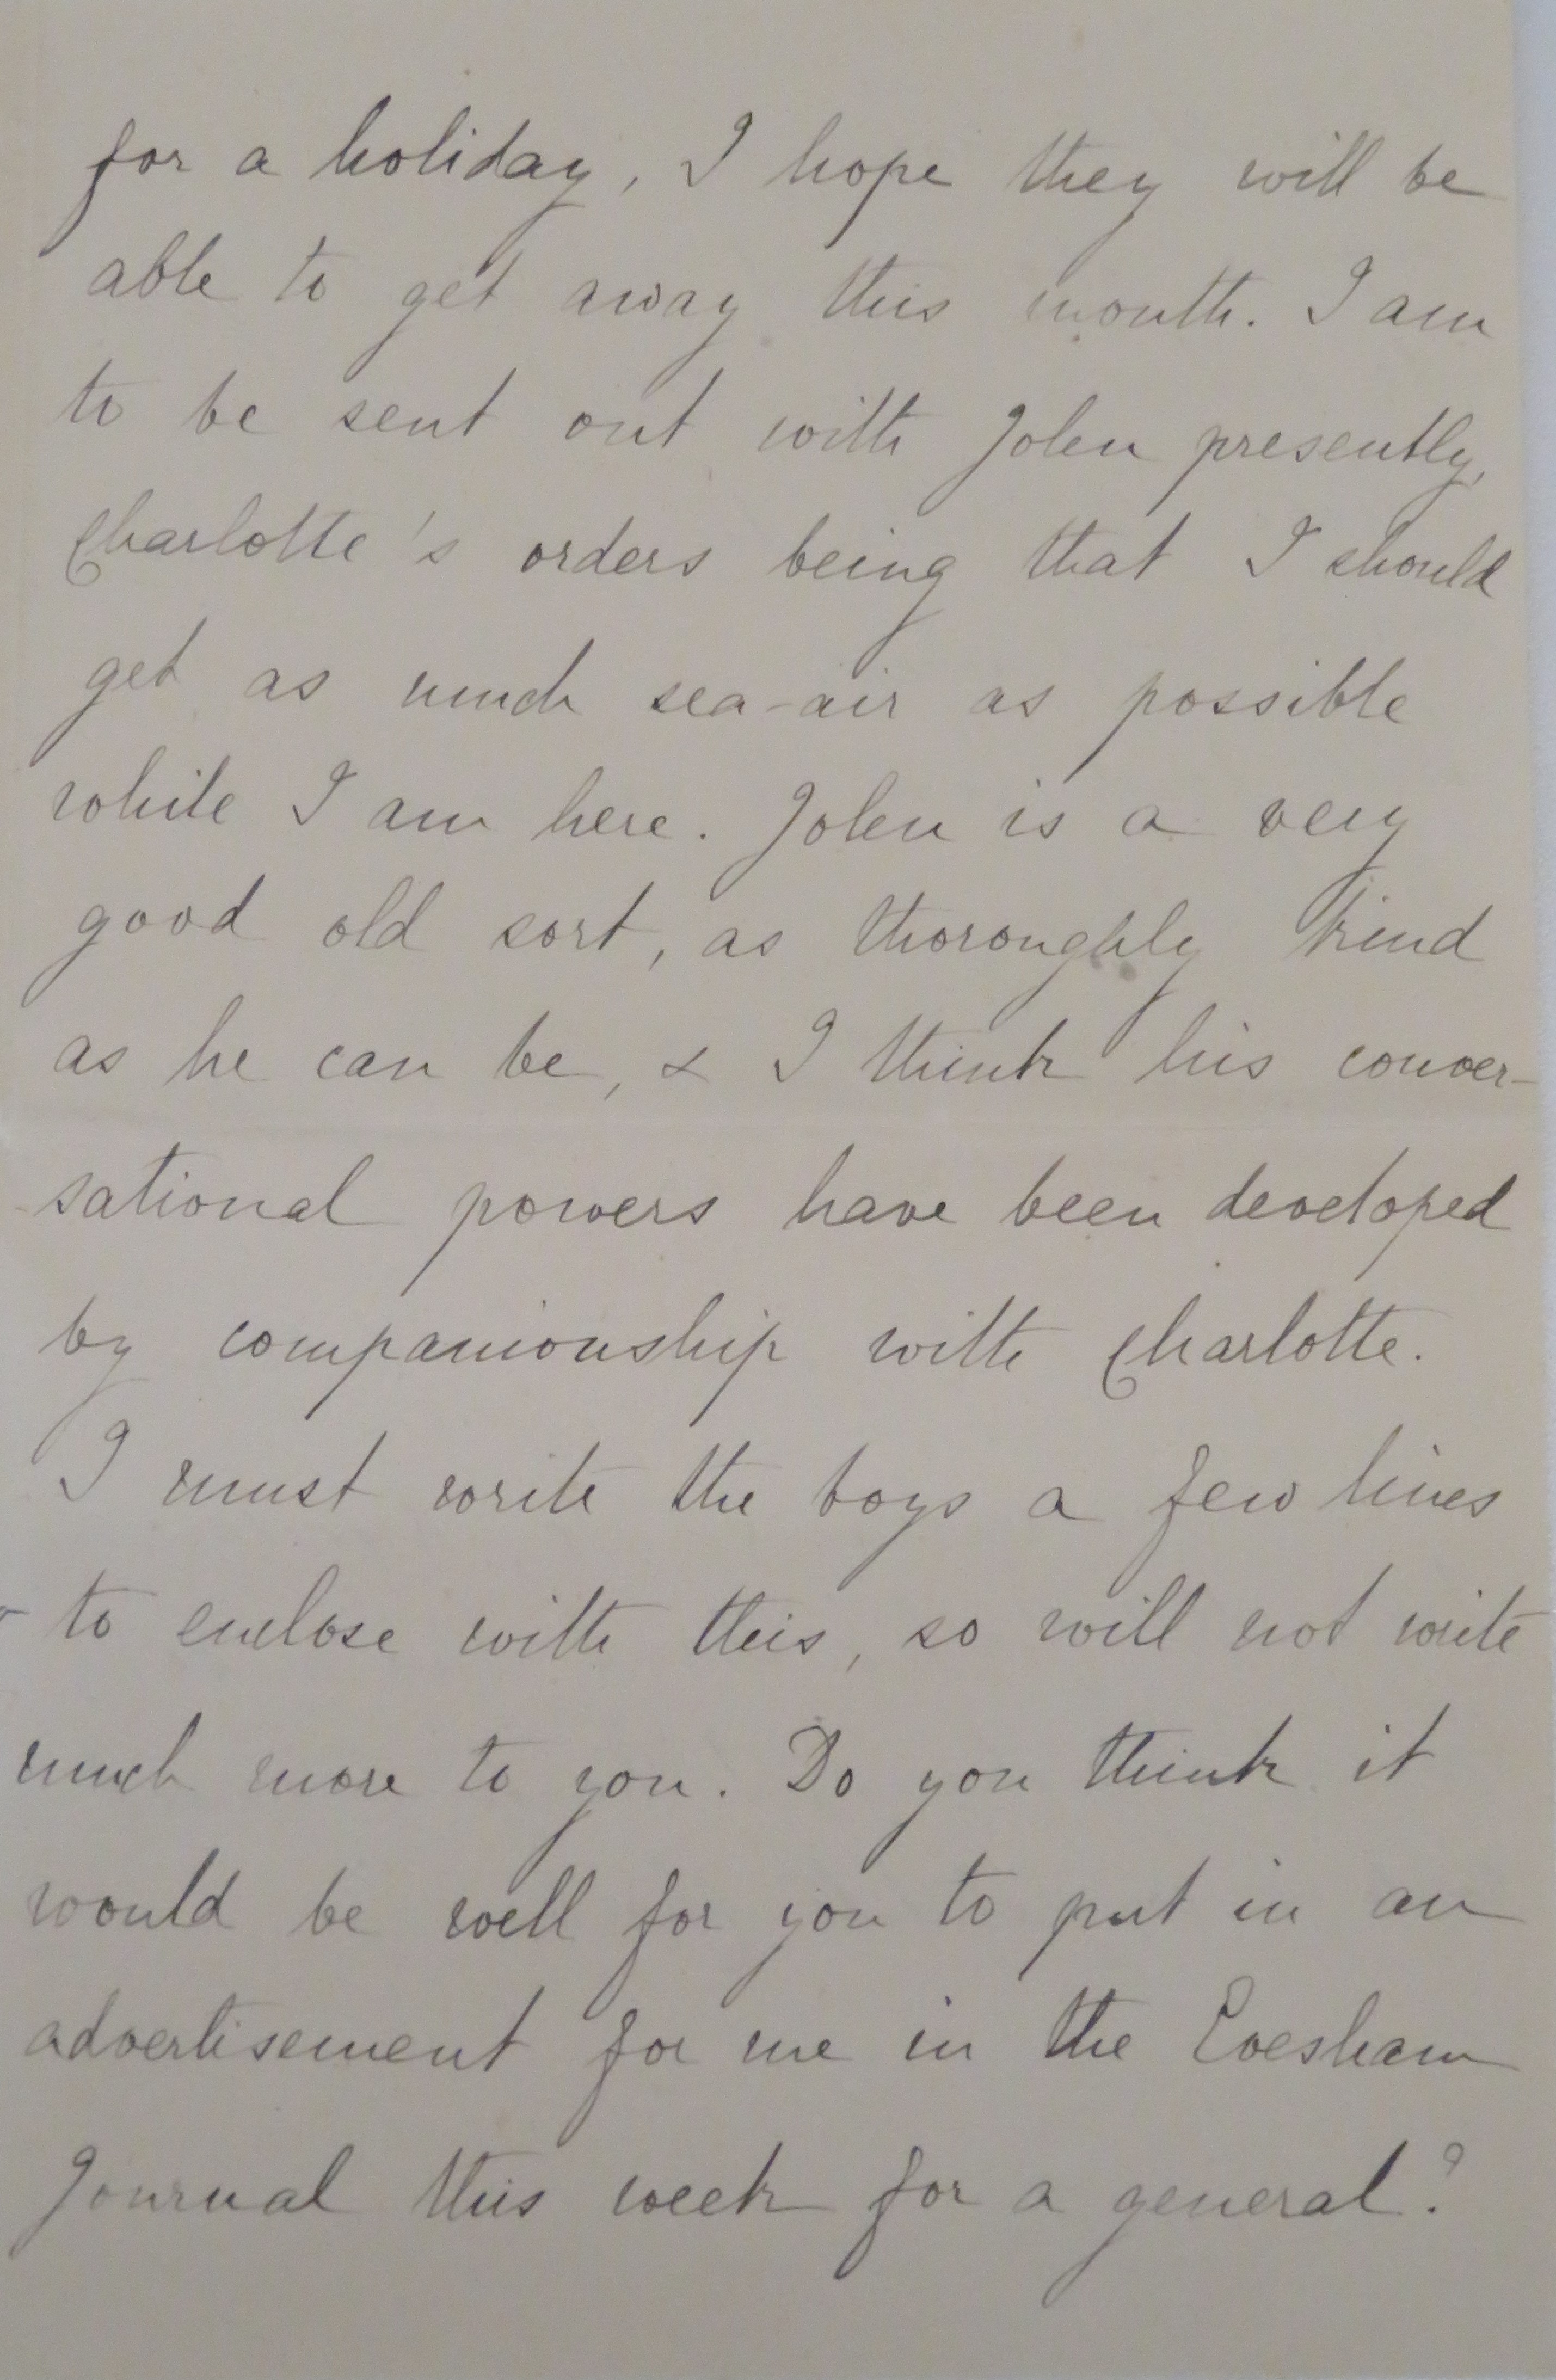 for a holiday, I hope they will be
able to get away this month. I am
to be sent out with John presently,
Charlotte's orders being that I should
get as much sea-air as possible
while I am here. John is a very
good old sort, as thoroughly kind
as he can be, & I think his conver-
sational powers have been developed
by companionship with Charlotte.
I must write the boys a few lines
to enclose with this, so will not write
much more to you. Do you think it
would be well for you to put in an
advertisement for me in the Evesham
Journal this week for a general?